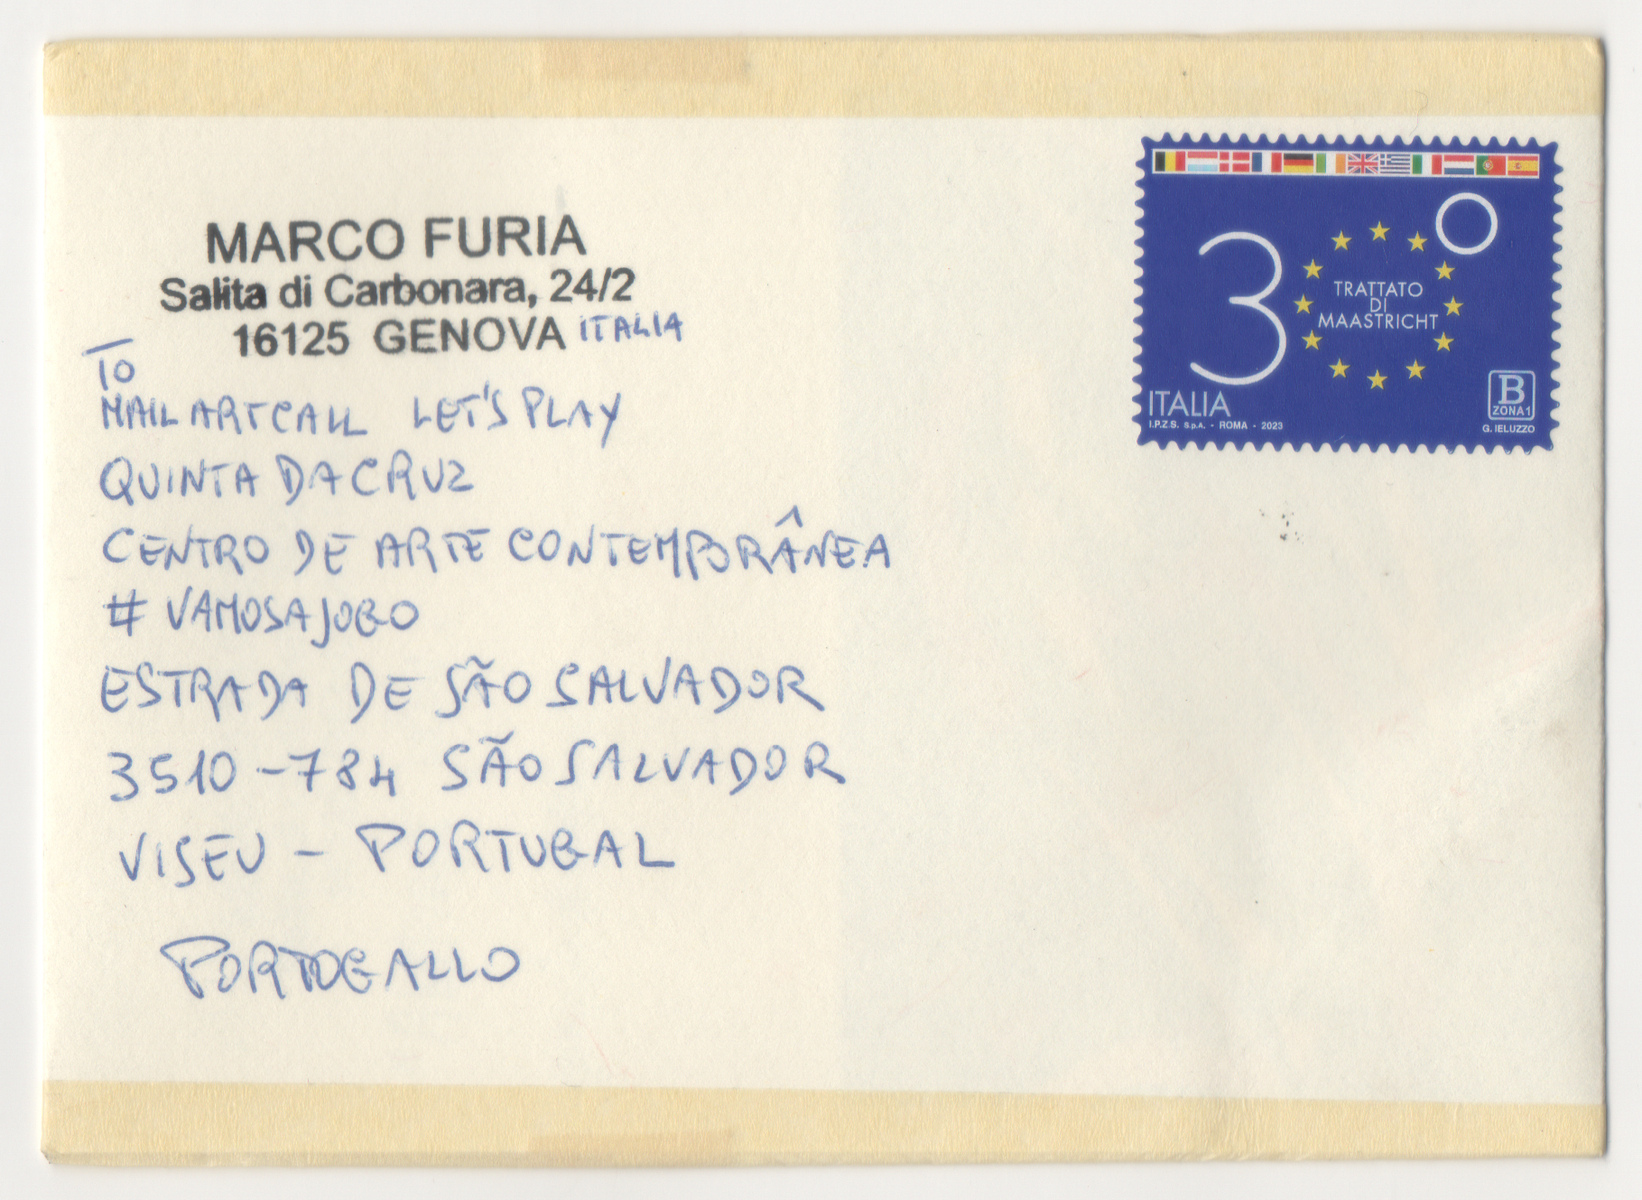 MARCO FURIA
Salita di Carbonara, 24/2
16125 GENOVA ITALIA
TO
MAIL ART CALL LET'S PLAY
QUINTA DA CRUZ
CENTRO DE ARTE CONTEMPORÂNEA
# VAMOSAJOGO
ESTRADA DE SÃO SALVADOR
3510-784 SÃO SALVADOR
VISEU - PORTUGAL
PORTOGALLO
30
TRATTATO
DI
MAASTRICHT
ITALIA
I.P.Z.S. S.p.A. - ROMA - 2023
B
ZONA 1
G. IELUZZO